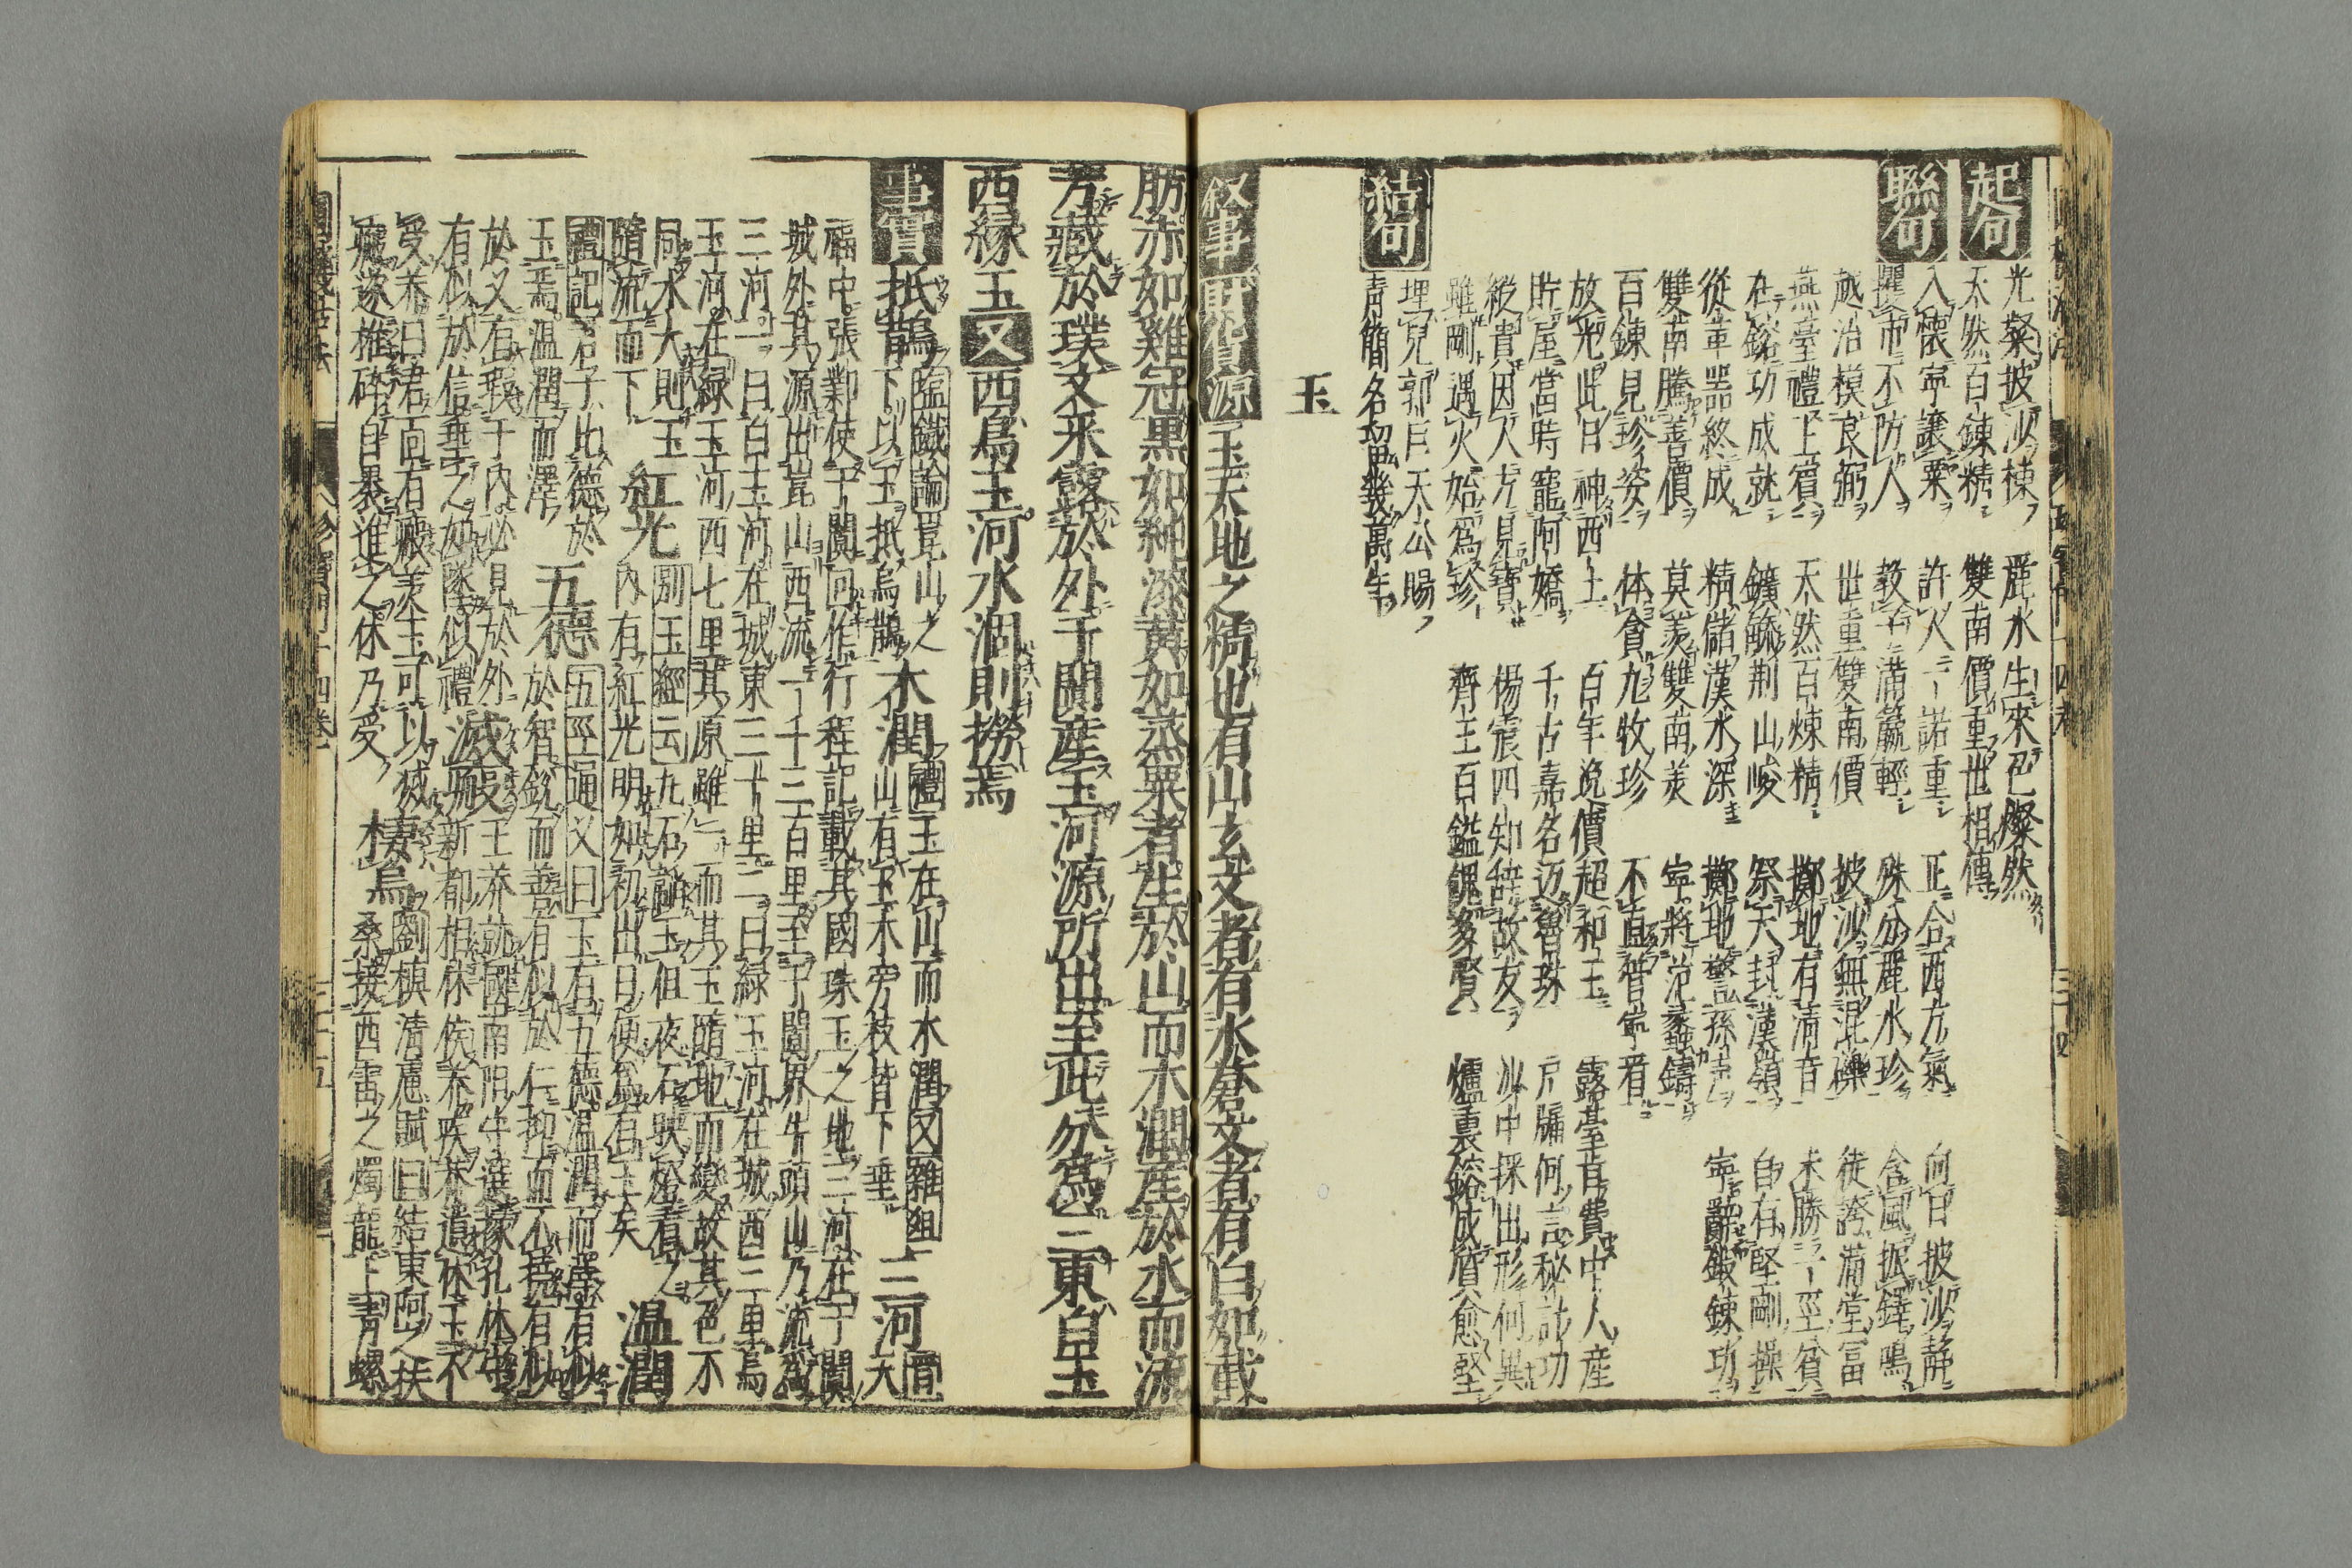 起句
光粲披沙棟 麗水生來色燦然
天然百錬精 雙南價重世相傳
聯句
入懷寧讓粟 許人一諾重 正合西方氣 向日披沙静
攫市不防人 教子滿籯輕 殊分麗水珍 含風振鐸鳴
越冶模良弼 世重雙南價 披沙無混礫 徒誇滿堂冨
燕臺禮上賓 天然百煉精 擲地有清音 未勝一經貧
在鎔功成就 鑛毓荆山峻 祭天封漢嶺 自有堅剛操
從革器終成 精儲漢水深 擲地驚孫 寧辭鍜錬功
雙南騰善價 莫羨雙南美 寧將范蠡鑄
百錬見珍姿 休貪九牧珍 不直管寧看
放光此日神西土 百年逸價超和玉 露臺肯費中人産
貯屋當時寵阿嬌 千古嘉名邁魯珠 戸牖何言秘計功
綬貴因人方見寳 楊震四知辭故友 沙中採出形何異
雖剛遇火始爲珍 齊王百鎰餽多賢 爐裏鎔成質愈堅
埋兒郭巨天公賜
結句
青簡名留幾萬年
玉
叙事
財貨源 玉天地之精也有山玄文者有水蒼文者有白如截
肪赤如雞冠黒如純漆黄如蒸粟者生於山而木潤産於水而流
芳藏於璞文采露於外于闐産玉河源所出至此分爲三東白玉
西緑玉又西烏玉河水涸則撈焉
事實
抵鵲 塩鐵論崑山之下以玉抵烏鵲 木潤 禮玉在山而木潤又雜俎山有玉木旁枝皆下垂 三河 晋天
福中張鄴使于闐回作行程記載其國珠玉之地三河在于闐
城外其源出崑山西流一千三百里至于闐界牛頭山乃流爲
三河一曰白玉河在城東三十里二曰緑玉河在城西二里烏
玉河在緑玉河西七里其原雖一而其玉隨地而變故其色不
同水大則玉隨流而下 紅光 別玉經云凡石韞玉但夜石映燈看之内有紅光明如初出日便知有玉矣 温潤
禮記君子比德於玉焉温潤而澤 五德 五經通又曰玉有五德温潤而澤有似
於智銳而善有似於仁抑而不撓有似
於又有瑕于内必見於外
有似於信垂之如墜似禮 滅瘢 王莽就國南陽守選掾孔休守新都相休侯莽疾莽遺休玉不
受莽曰誠向有瘢美玉可以滅瘢遂椎碎自裹進之休乃受 棲烏 劉楨清慮賦曰結東阿之扶桑接西雷之燭龍上青螺